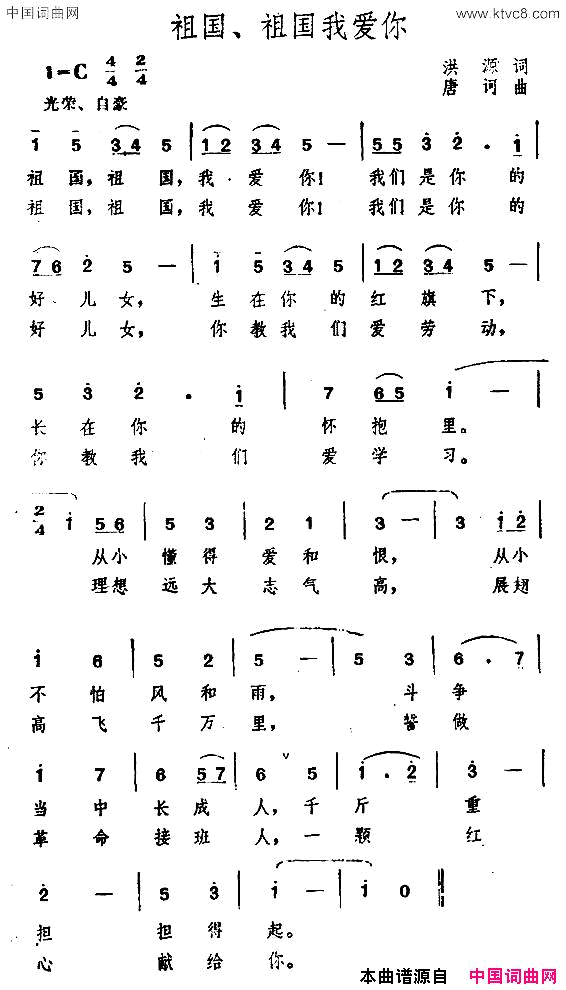 中国词曲网
www.ktvc8.com
祖国、祖国我爱你
1=C 4/4 2/4
洪源词
唐诃曲
光荣、自豪
1 5 3 4 5 | 1 2 3 4 5 — | 5 5 3 2 . 1 |
祖国，祖国，我爱你！我们是你的
祖国，祖国，我爱你！我们是你的
7 6 2 5 — | 1 5 3 4 5 | 1 2 3 4 5 — |
好儿女，生在你的红旗下，
好儿女，你教我们爱劳动，
5 3 2 . 1 | 7 6 5 1 — |
长在你的怀抱里。
你教我们爱学习。
2/4 1 5 6 | 5 3 | 2 1 | 3 — | 3 1 2 |
从小懂得爱和恨，从小
理想远大志气高，展翅
1 6 | 5 2 | 5 — | 5 3 | 6 . 7 |
不怕风和雨，斗争
高飞千万里，誓做
1 7 | 6 5 7 | 6 5 | 1 . 2 | 3 — |
当中长成人，千斤重
革命接班人，一颗红
2 — | 5 3 | 1 — | 1 0 ‖
担担得起。
心献给你。
本曲谱源自 中国词曲网